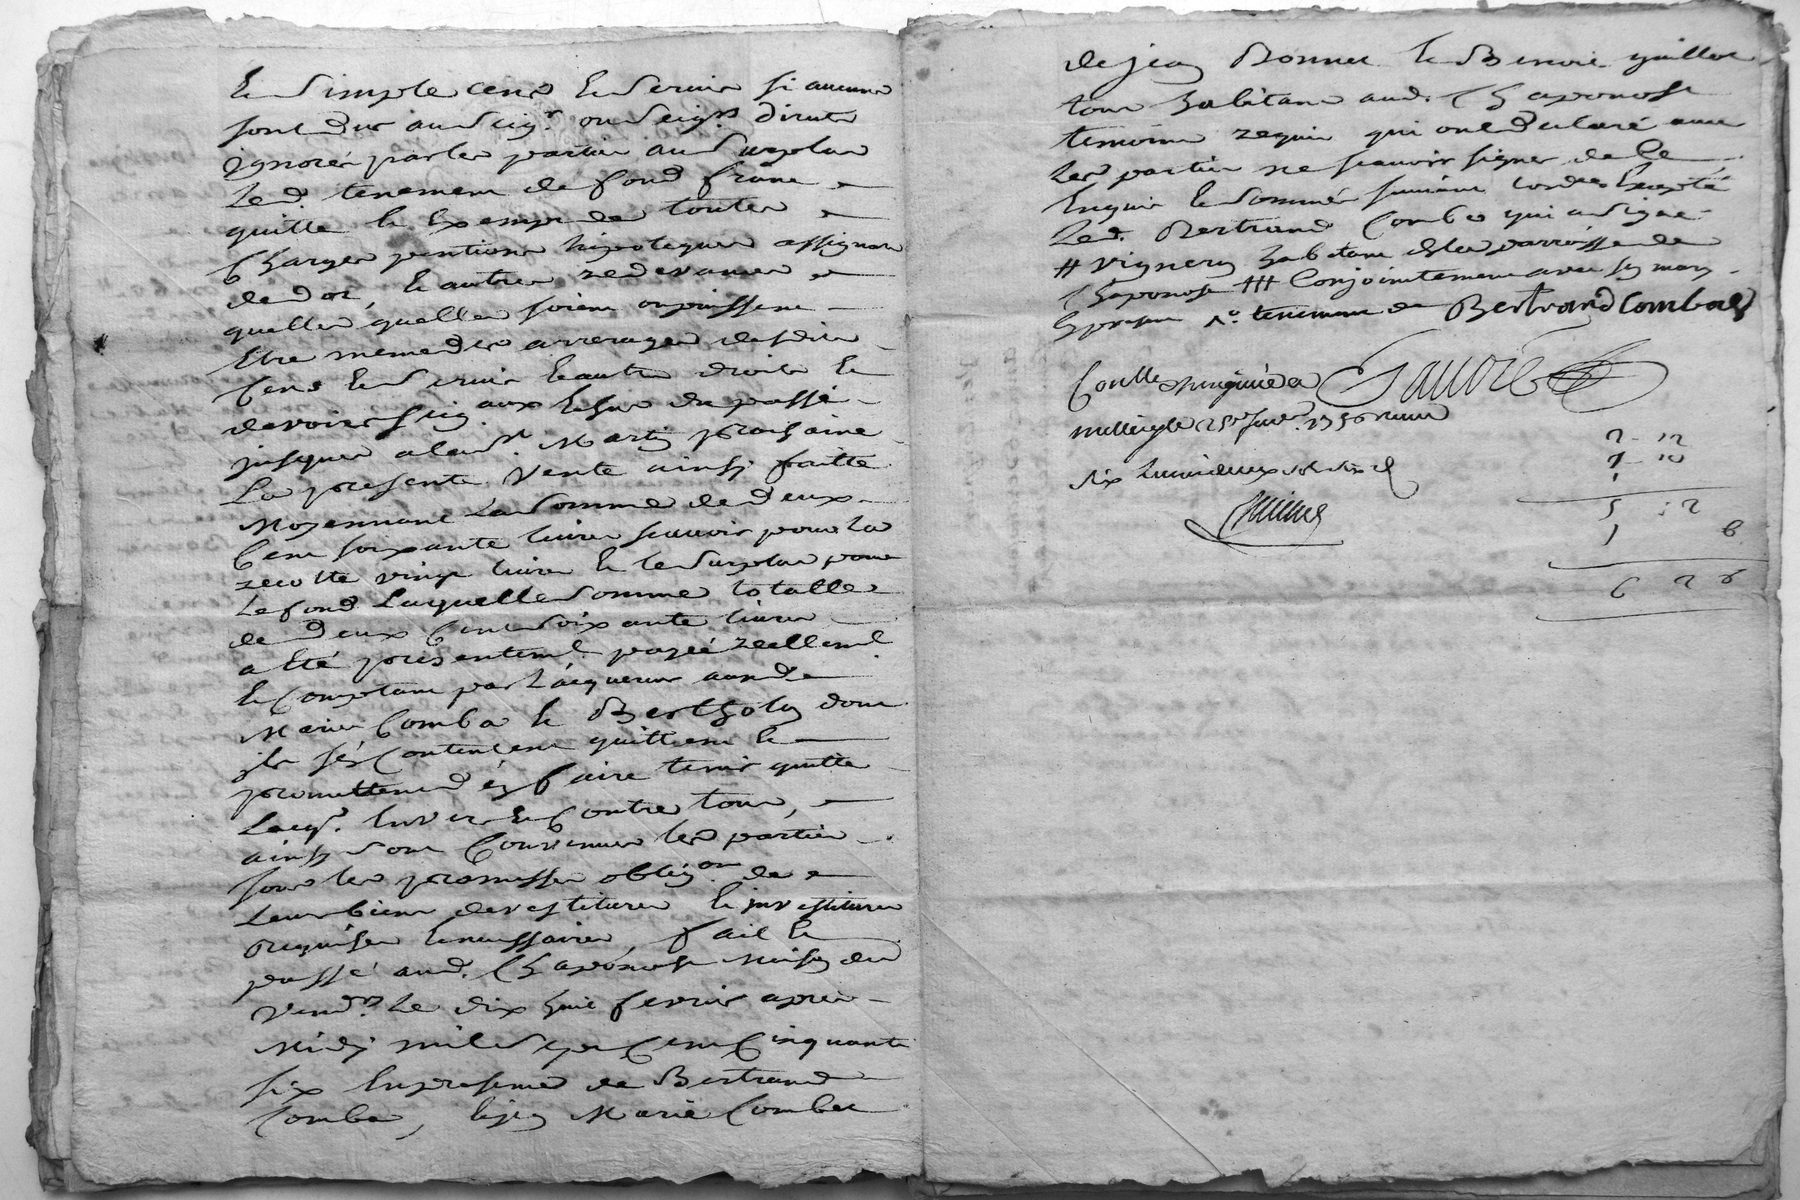 et simple cens et servis si aucuns
sont dus au Seig.r ou Seig.rs directs
ignorés par les parties au surplus
led. tenement de fond franc
quitte et exempt de toutes
charges pentions hipoteques assignaõn
de dot, et autres redevances
quelles quelles soient ou puissent
etre meme des arrerages desdits
cens et servis et autres droits et
devoirs seig.aux et ce du passé
jusques a la S.t Martin prochaine
La presente Vente ainsy faitte
Moyennant La somme de deux
Cent soixante livres scavoir pour la
recolte vingt livres et le surplus pour
Le fond Laquelle somme totalle
de deux Cent soixante livres
a été presentem.t payée reellem.t
et Comptant par L'acquereur aux d.
Maries Comba et Bertholon dont
ils se Contentent quittent et
promettent en faire tenir quitte
Lacq.r Envers et Contre tous,
ainsy sont Convenus les parties
sous les promesses oblig.on de
Leurs biens devestitures et investitures
requises et necessaires, fait et
passé aud. Chaponost Maison du
Vend.r Le dix huit fevrier apres
Midy mil sept Cent Cinquante
six En presence de Bertrand
Combe,        Marie Combet
de jean Bonnet et Benoit guillot
tous habitans aud. Chaponost
temoins requis qui ont declaré avec
Les parties ne scavoir signer de ce
Enquis et sommés suivant lord.ce Excepté
Led. Bertrand Combe qui a signé
# vigneron habitant de la parroisse de
Chaponost ### Conjointement avec son mary
 tenement de Bertrand Combas
Conlle Savoie
 1756
six livres deux sols six d
2 12
 10
5 12
1 6
6 2 6